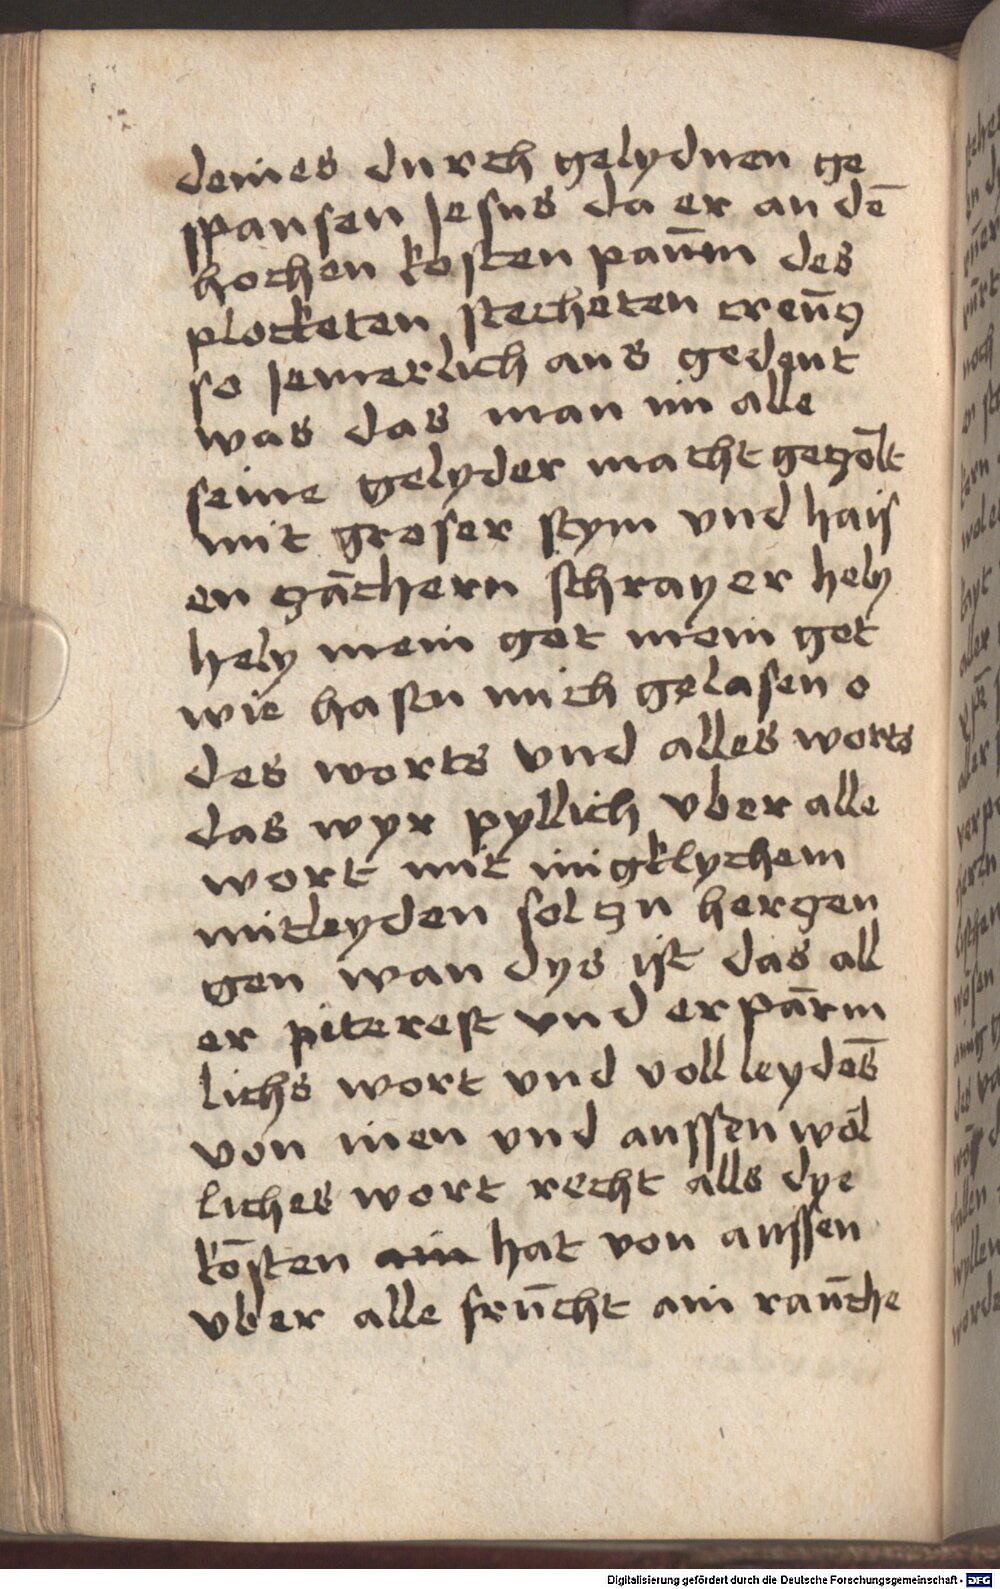 deines durch gelydnen ge
spansen Jesus da er an dē
hochen kosten paūm des
plocketen stecheten creūcz
so Jemerlich aus gedent
was das man im alle
seine gelyder macht gezölt
mit groser stym vnd hais
en zāchern schray er hely
hely mein got mein got
wie hastu mich gelasen o
des worts vnd alles worts
das wyr pyllich vber alle
wort mit inigklychem
mitleyden sol zu herzen
gen wan dys ist das all
er piterest vnd erpārm
lichs wort vnd voll leydēs
von inen vnd aussen wōl
liches wort recht alls dye
kōsten ain hat von aussen
vber alle frūcht ain raūche
Digitalisierung gefördert durch die Deutsche Forschungsgemeinschaft - DFG